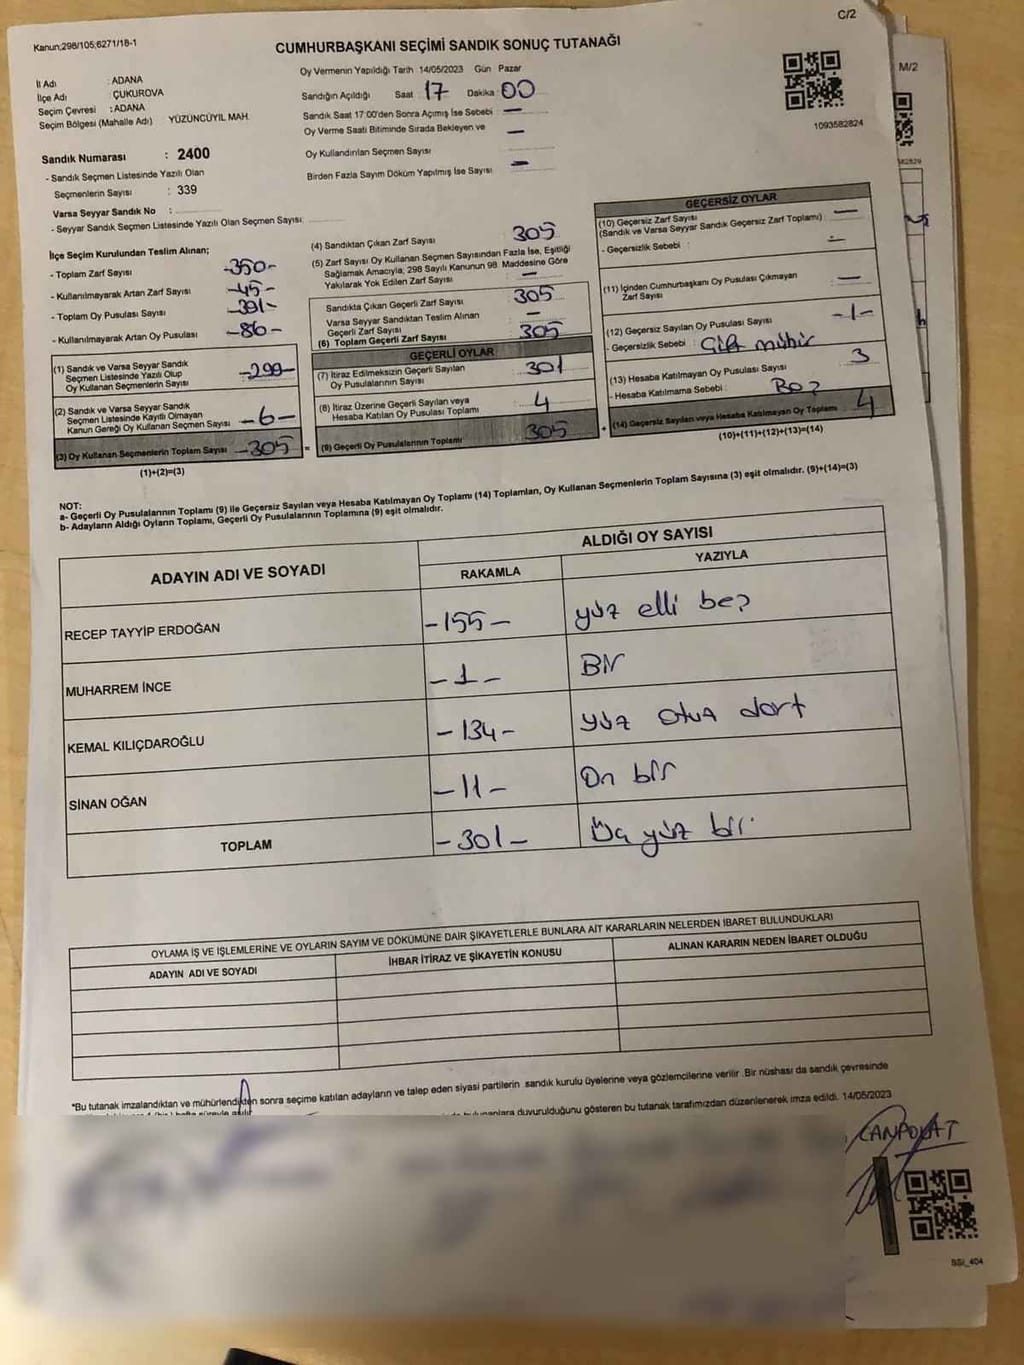 C/2
Kanun:298/105;6271/18-1
CUMHURBAŞKANI SEÇİMİ SANDIK SONUÇ TUTANAĞI
M/2
İl Adı : ADANA
İlçe Adı : ÇUKUROVA
Seçim Çevresi : ADANA
Seçim Bölgesi (Mahalle Adı) YÜZÜNCÜYIL MAH.
Oy Vermenin Yapıldığı Tarih 14/05/2023 Gün Pazar
Sandığın Açıldığı Saat 17 Dakika : 00
Sandık Saat 17:00'den Sonra Açımış İse Sebebi : —
Oy Verme Saati Bitiminde Sırada Bekleyen ve
Oy Kullandırılan Seçmen Sayısı —
Birden Fazla Sayım Döküm Yapılmış İse Sayısı —
1093582824
Sandık Numarası : 2400
- Sandık Seçmen Listesinde Yazılı Olan
Seçmenlerin Sayısı : 339
Varsa Seyyar Sandık No :
- Seyyar Sandık Seçmen Listesinde Yazılı Olan Seçmen Sayısı:
İlçe Seçim Kurulundan Teslim Alınan;
- Toplam Zarf Sayısı -350-
- Kullanılmayarak Artan Zarf Sayısı -45-
- Toplam Oy Pusulası Sayısı -391-
- Kullanılmayarak Artan Oy Pusulası -86-
(1) Sandık ve Varsa Seyyar Sandık
Seçmen Listesinde Yazılı Olup
Oy Kullanan Seçmenlerin Sayısı -299-
(2) Sandık ve Varsa Seyyar Sandık
Seçmen Listesinde Kayıtlı Olmayan
Kanun Gereği Oy Kullanan Seçmen Sayısı -6-
(3) Oy Kullanan Seçmenlerin Toplam Sayısı -305-
(1)+(2)=(3)
(4) Sandıktan Çıkan Zarf Sayısı 305
(5) Zarf Sayısı Oy Kullanan Seçmen Sayısından Fazla İse, Eşitliği
Sağlamak Amacıyla; 298 Sayılı Kanunun 98. Maddesine Göre
Yakılarak Yok Edilen Zarf Sayısı : —
Sandıkta Çıkan Geçerli Zarf Sayısı 305
Varsa Seyyar Sandıktan Teslim Alınan
Geçerli Zarf Sayısı —
(6) Toplam Geçerli Zarf Sayısı 305
GEÇERLİ OYLAR
(7) İtiraz Edilmeksizin Geçerli Sayılan
Oy Pusulalarının Sayısı 301
(8) İtiraz Üzerine Geçerli Sayılan veya
Hesaba Katılan Oy Pusulası Toplamı 4
(9) Geçerli Oy Pusulalarının Toplamı 305
GEÇERSİZ OYLAR
(10) Geçersiz Zarf Sayısı
(Sandık ve Varsa Seyyar Sandık Geçersiz Zarf Toplamı) : —
- Geçersizlik Sebebi : —
(11) İçinden Cumhurbaşkanı Oy Pusulası Çıkmayan
Zarf Sayısı —
(12) Geçersiz Sayılan Oy Pusulası Sayısı -1-
- Geçersizlik Sebebi : Çift mühür
(13) Hesaba Katılmayan Oy Pusulası Sayısı 3
- Hesaba Katılmama Sebebi : Boş
(14) Geçersiz Sayılan veya Hesaba Katılmayan Oy Toplamı 4
(10)+(11)+(12)+(13)=(14)
NOT:
a- Geçerli Oy Pusulalarının Toplamı (9) ile Geçersiz Sayılan veya Hesaba Katılmayan Oy Toplamı (14) Toplamları, Oy Kullanan Seçmenlerin Toplam Sayısına (3) eşit olmalıdır. (9)+(14)=(3)
b- Adayların Aldığı Oyların Toplamı, Geçerli Oy Pusulalarının Toplamına (9) eşit olmalıdır.
ADAYIN ADI VE SOYADI
ALDIĞI OY SAYISI
RAKAMLA YAZIYLA
RECEP TAYYİP ERDOĞAN -155- yüz elli beş
MUHARREM İNCE -1- Bir
KEMAL KILIÇDAROĞLU -134- yüz otuz dört
SİNAN OĞAN -11- On bir
TOPLAM -301- Üç yüz bir
OYLAMA İŞ VE İŞLEMLERİNE VE OYLARIN SAYIM VE DÖKÜMÜNE DAİR ŞİKAYETLERLE BUNLARA AİT KARARLARIN NELERDEN İBARET BULUNDUKLARI
ADAYIN ADI VE SOYADI İHBAR İTİRAZ VE ŞİKAYETİN KONUSU ALINAN KARARIN NEDEN İBARET OLDUĞU
*Bu tutanak imzalandıktan ve mühürlendikten sonra seçime katılan adayların ve talep eden siyasi partilerin sandık kurulu üyelerine veya gözlemcilerine verilir .Bir nüshası da sandık çevresinde
duyurulduğunu gösteren bu tutanak tarafımızdan düzenlenerek imza edildi. 14/05/2023
CANPOLAT
SSI_404